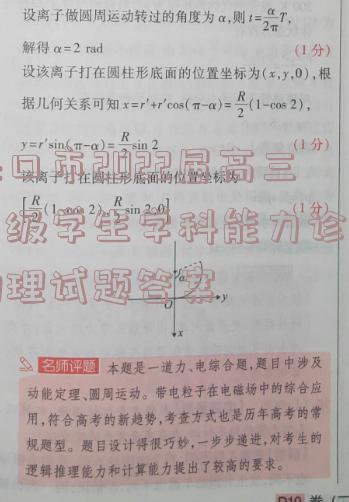 设离子做圆周运动转过的角度为 α,则 t=α/2π T,
解得 α=2 rad (1分)
设该离子打在圆柱形底面的位置坐标为(x,y,0),根
据几何关系可知 x=r'+r'cos(π-α)=R/2(1-cos 2),
y=r'sin(π-α)=R/2 sin 2 (1分)
该离子打在圆柱形底面的位置坐标为
[R/2(1-cos 2),R/2 sin 2,0] (1分)
口市2022届高三
级学生学科能力诊
理试题答案
α
O
y
x
名师评题 本题是一道力、电综合题,题目中涉及
动能定理、圆周运动。带电粒子在电磁场中的综合应
用,符合高考的新趋势,考查方式也是历年高考的常
规题型。题目设计得很巧妙,一步步递进,对考生的
逻辑推理能力和计算能力提出了较高的要求。
D10 卷